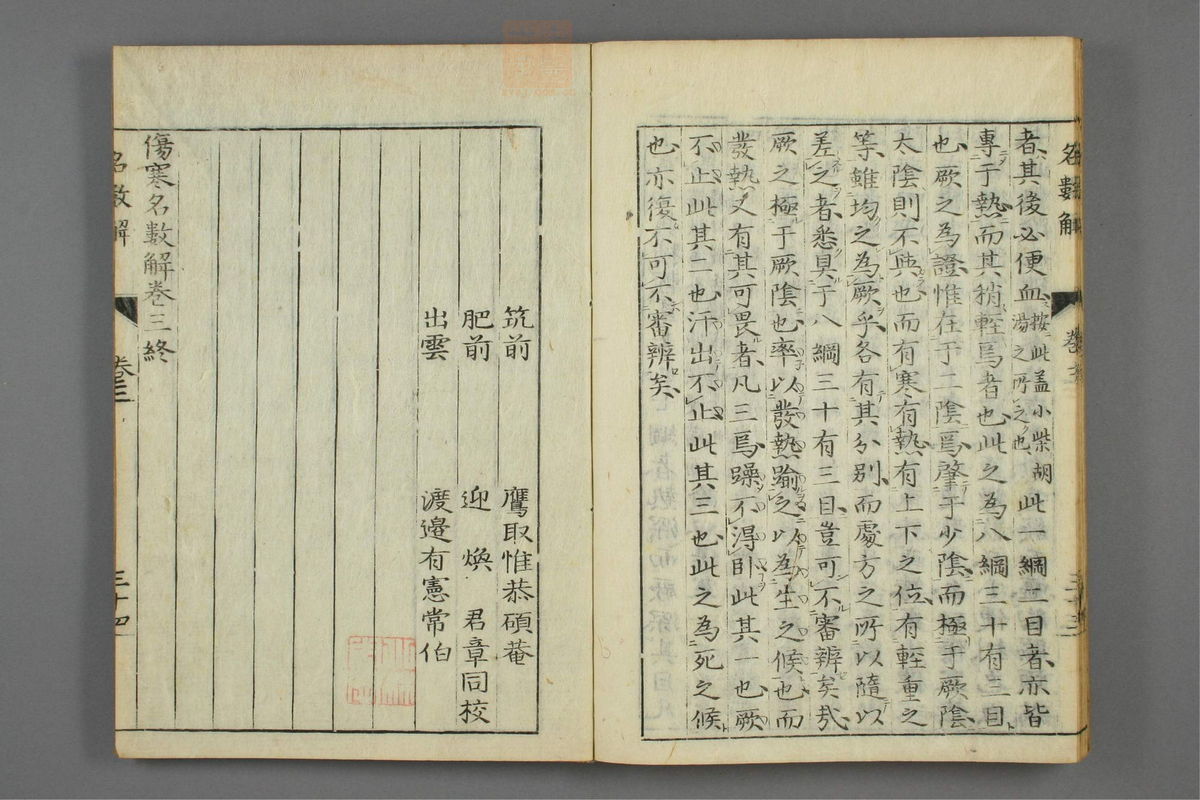 名數解
者其後必便血按此蓋小柴胡湯之所之也此一綱二目者亦皆
專于熱而其稍輕焉者也此之為八綱三十有三目
也厥之為證惟在于二陰焉肇于少陰而極于厥陰
太陰則不與也而有寒有熱有上下之位有輕重之
等雖均之為厥乎各有其分別而處方之所以隨以
差之者悉具于八綱三十有三目豈可不審辨矣哉
厥之極于厥陰也率以發熱踰之以為生之候也而
發熱又有其可畏者凡三焉躁不得臥此其一也厥
不止此其二也汗出不止此其三也此之為死之候
也亦復不可不審辨矣
筑前 鷹取惟恭碩菴
肥前 迎煥君章同校
出雲 渡邉有憲常伯
傷寒名數解卷三終
名數解 卷三 三十四